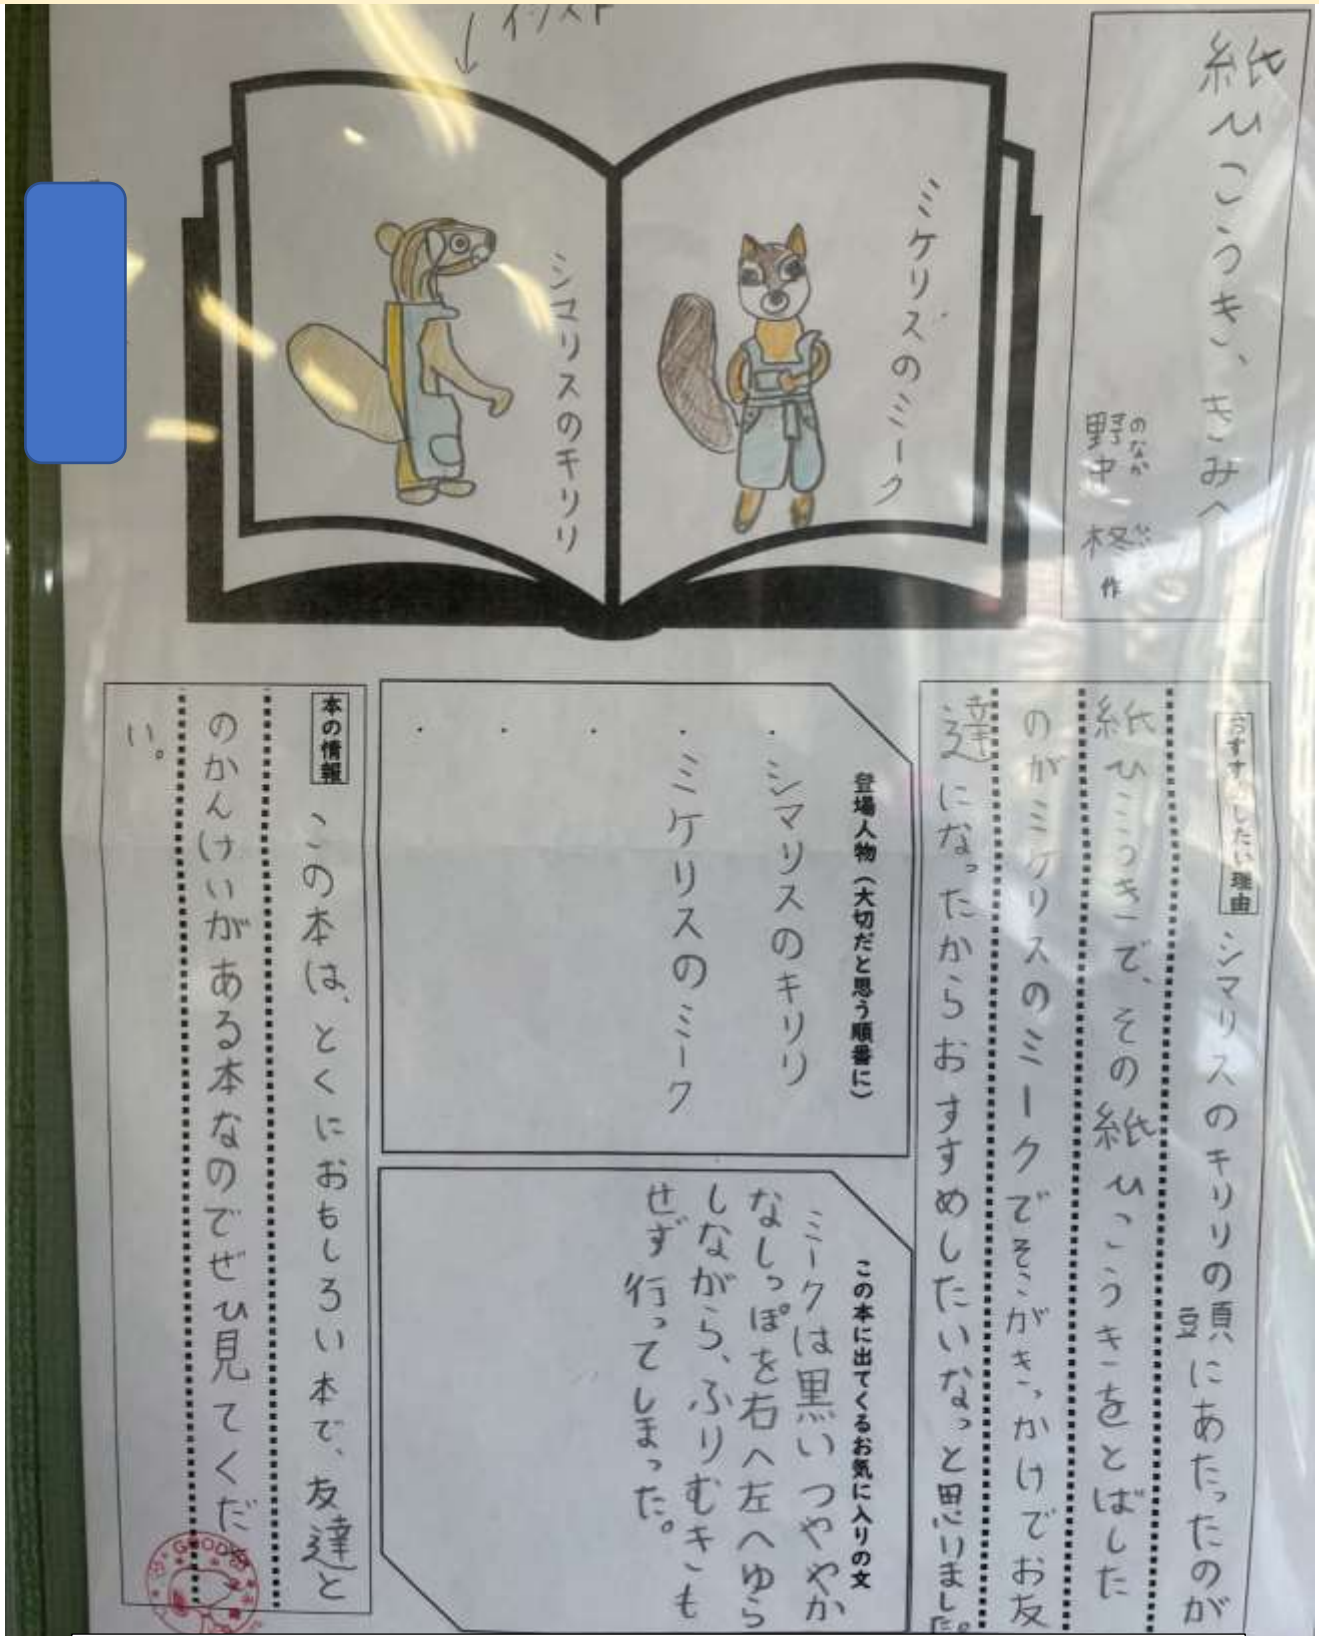 紙ひこうき、きみへ
のなか
野中 柊 作
イラスト
ミケリスのミーク
シマリスのキリリ
おすすめしたい理由
シマリスのキリリの頭にあたったのが
紙ひこうきで、その紙ひこうきをとばした
のがミケリスのミークでそこがきっかけでお友
達になったからおすすめしたいなっと思いました。
登場人物（大切だと思う順番に）
・シマリスのキリリ
・ミケリスのミーク
・
・
・
この本に出てくるお気に入りの文
ミークは黒いつややか
なしっぽを右へ左へゆら
しながら、ふりむきも
せず行ってしまった。
本の情報
この本は、とくにおもしろい本で、友達と
のかんけいがある本なのでぜひ見てくださ
い。
GOOD